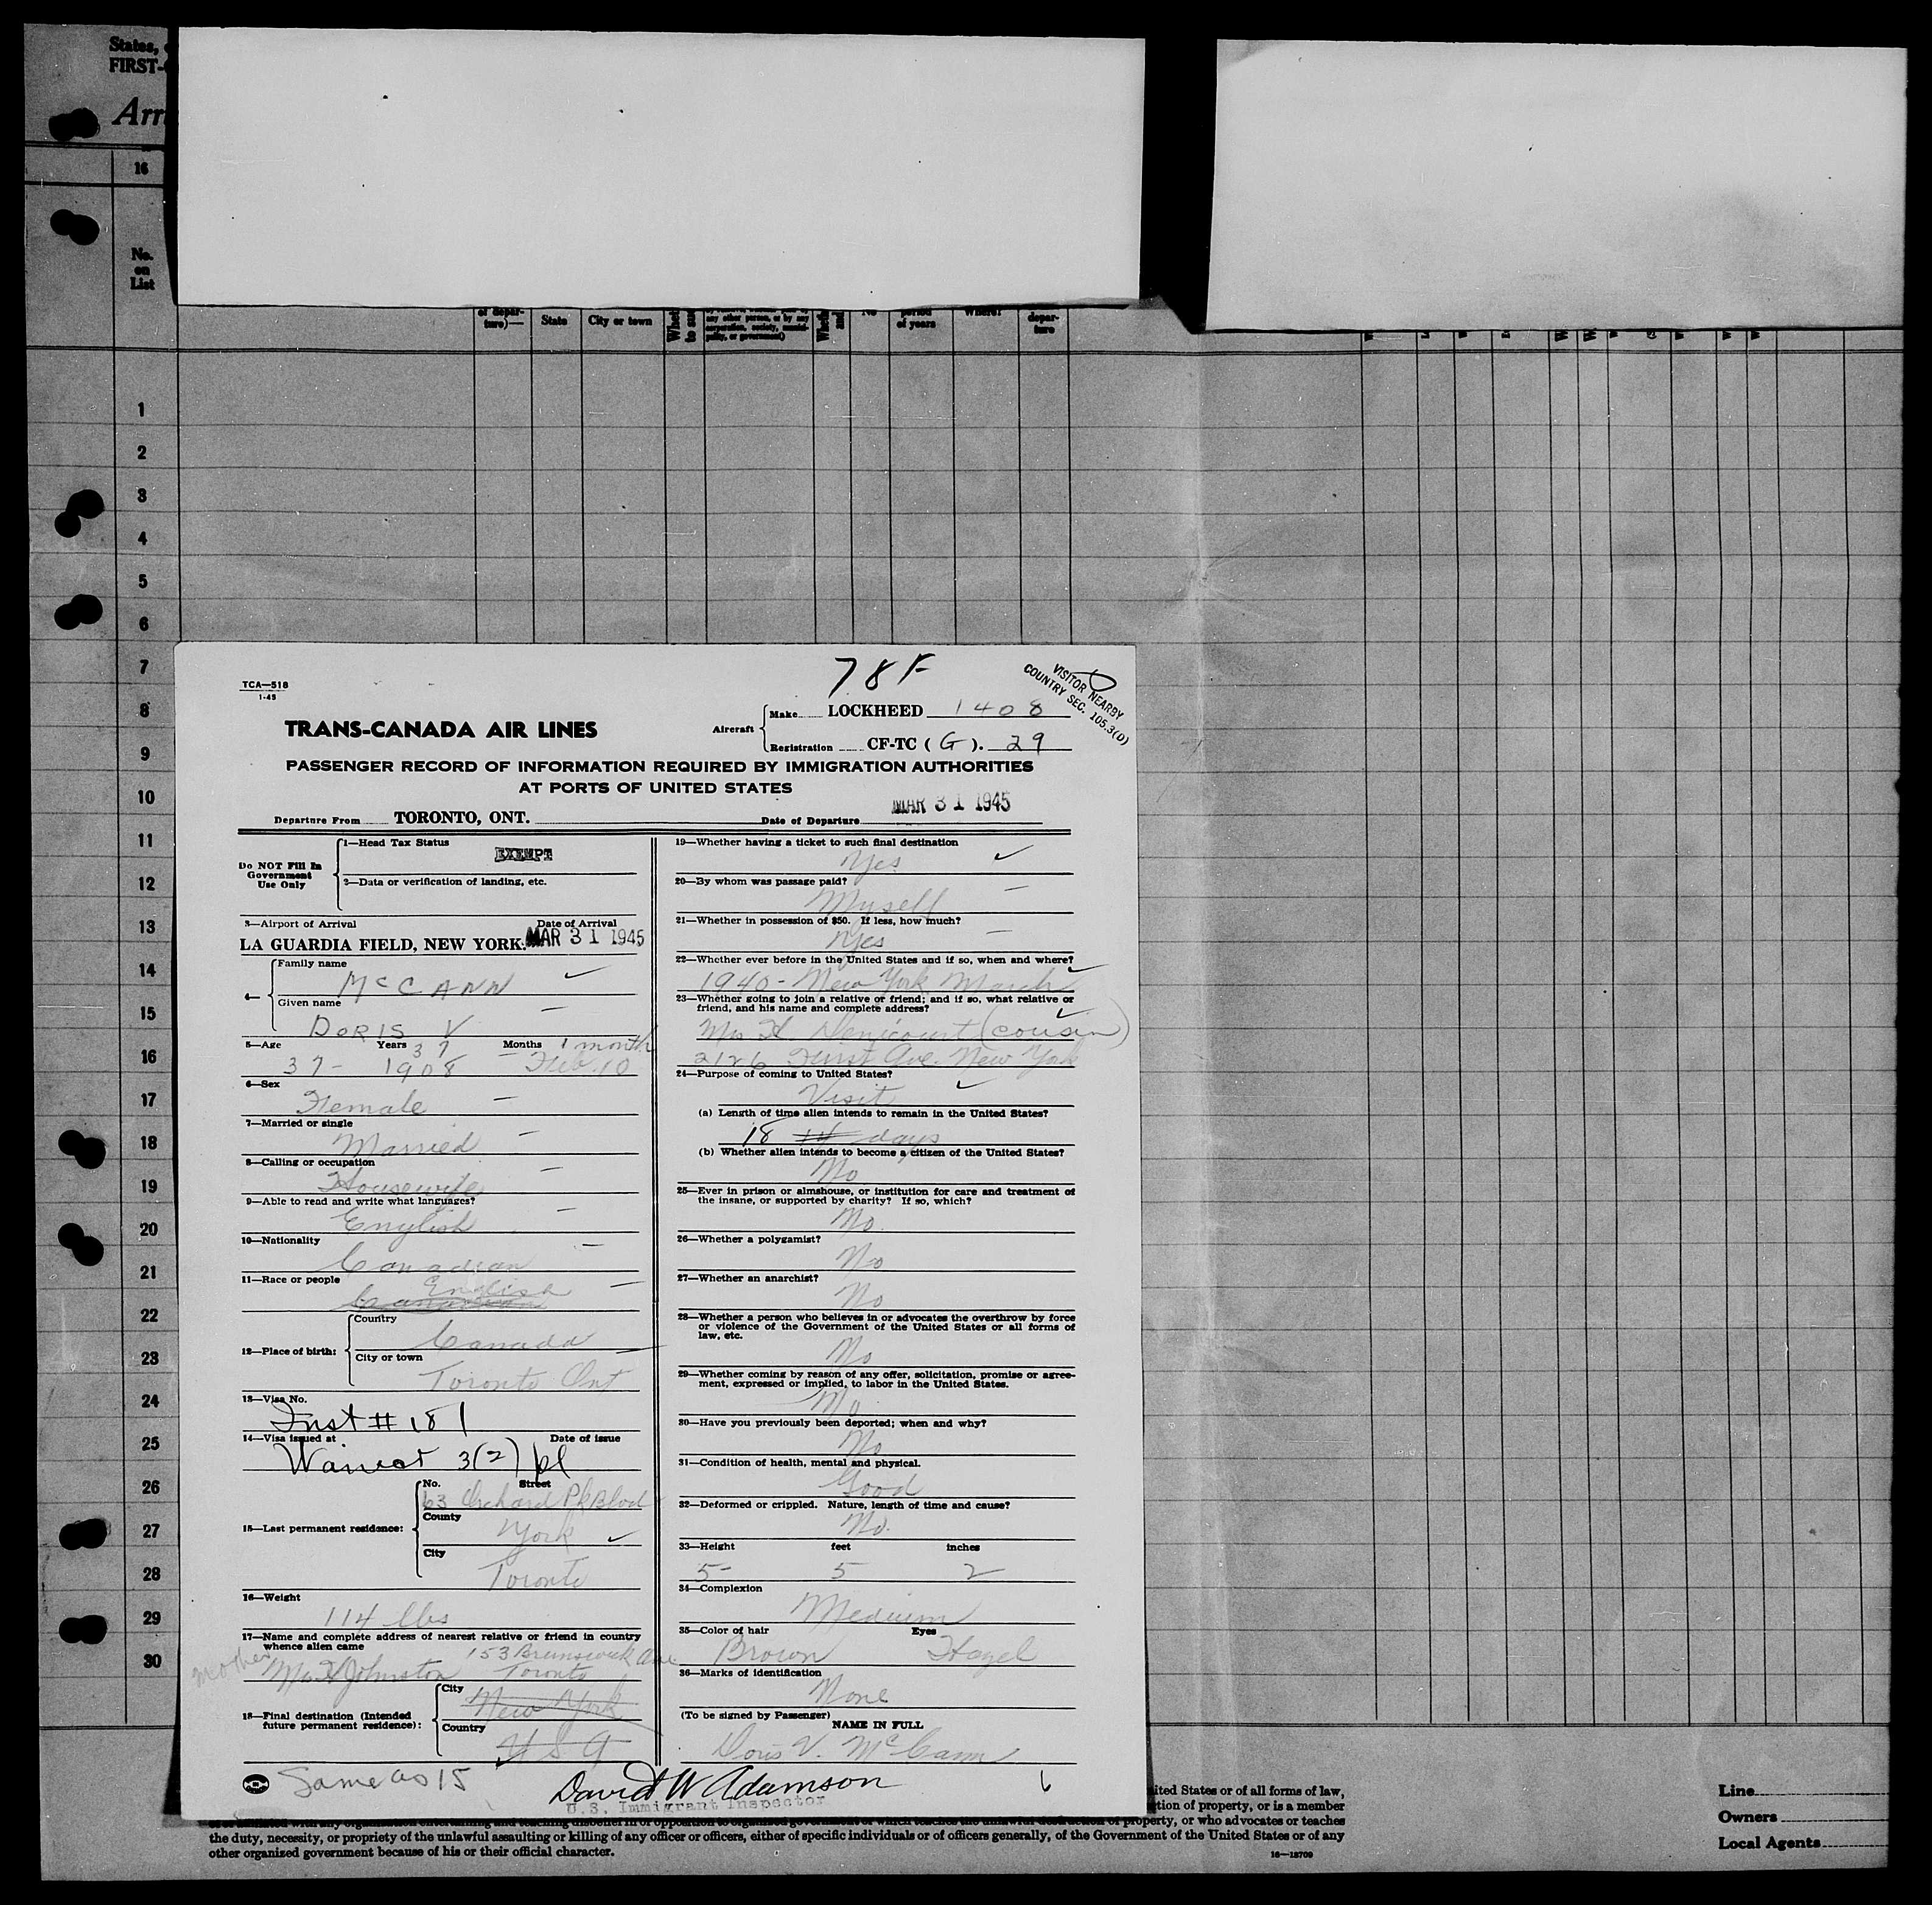 States,
FIRST-
Arri
16
No.
on
List
of depar-
ture)—
State
City or town
any other person, or by any
corporation, society, munici-
pality, or government)
No
period
of years
Where?
depar-
ture
1
2
3
4
5
6
7
8
9
10
11
12
13
14
15
16
17
18
19
20
21
22
23
24
25
26
27
28
29
30
78F
TCA—518
1-45
VISITOR NEARBY
COUNTRY SEC. 105.3(D)
TRANS-CANADA AIR LINES
Aircraft
Make LOCKHEED 1408
Registration CF-TC ( G ). 29
PASSENGER RECORD OF INFORMATION REQUIRED BY IMMIGRATION AUTHORITIES
AT PORTS OF UNITED STATES
Departure From TORONTO, ONT. Date of Departure MAR 31 1945
Do NOT Fill In
Government
Use Only
1—Head Tax Status
EXEMPT
2—Data or verification of landing, etc.
3—Airport of Arrival Date of Arrival
LA GUARDIA FIELD, NEW YORK. MAR 31 1945
4—
Family name
McCANN
Given name
DORIS V
5—Age Years 37 Months 1 month
37 - 1908 - Feb. 10
6—Sex
Female
7—Married or single
Married
8—Calling or occupation
Housewife
9—Able to read and write what languages?
English
10—Nationality
Canadian
11—Race or people
English
Canadian
12—Place of birth:
Country
Canada
City or town
Toronto Ont
13—Visa No.
Inst # 181
14—Visa issued at Date of issue
Waiver 3(2) pl
15—Last permanent residence:
No. Street
63 Orchard Pk Blvd
County
York
City
Toronto
16—Weight
114 lbs
17—Name and complete address of nearest relative or friend in country
whence alien came
153 Brunswick Ave
mother Mrs Johnston Toronto
18—Final destination (Intended
future permanent residence):
City
New York
Country
USA
Same as 15
19—Whether having a ticket to such final destination
Yes
20—By whom was passage paid?
Myself
21—Whether in possession of $50. If less, how much?
Yes
22—Whether ever before in the United States and if so, when and where?
1940 - New York March
23—Whether going to join a relative or friend; and if so, what relative or
friend, and his name and complete address?
Mrs H (cousin)
2126 First Ave. New York
24—Purpose of coming to United States?
Visit
(a) Length of time alien intends to remain in the United States?
18 14 days
(b) Whether alien intends to become a citizen of the United States?
No
25—Ever in prison or almshouse, or institution for care and treatment of
the insane, or supported by charity? If so, which?
No.
26—Whether a polygamist?
No
27—Whether an anarchist?
No
28—Whether a person who believes in or advocates the overthrow by force
or violence of the Government of the United States or all forms of
law, etc.
No
29—Whether coming by reason of any offer, solicitation, promise or agree-
ment, expressed or implied, to labor in the United States.
No
30—Have you previously been deported; when and why?
No
31—Condition of health, mental and physical.
Good
32—Deformed or crippled. Nature, length of time and cause?
No.
33—Height feet inches
5- 5 2
34—Complexion
Medium
35—Color of hair Eyes
Brown Hazel
36—Marks of identification
None
(To be signed by Passenger)
NAME IN FULL
Doris V. McCann
David W Adamson
U.S. Immigrant Inspector
ited States or of all forms of law,
tion of property, or is a member
of or affiliated with any organization entertaining and teaching disbelief in or opposition to organized government or which teaches the unlawful destruction of property, or who advocates or teaches
the duty, necessity, or propriety of the unlawful assaulting or killing of any officer or officers, either of specific individuals or of officers generally, of the Government of the United States or of any
other organized government because of his or their official character.
16—13709
Line
Owners
Local Agents